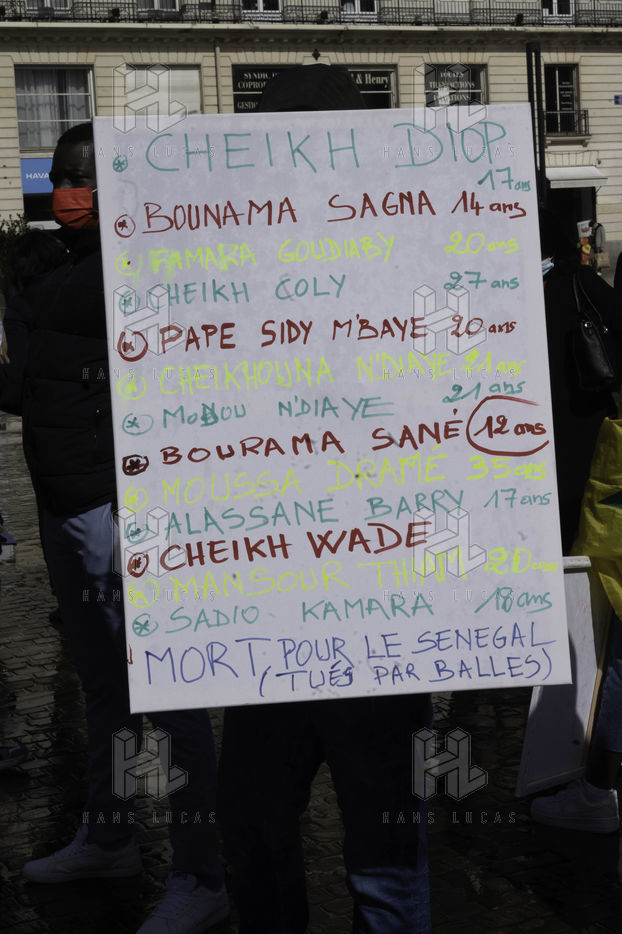 CHEIKH DIOP
17 ans
BOUNAMA SAGNA 14 ans
FAMARA GOUDIABY 20 ans
CHEIKH COLY 27 ans
PAPE SIDY M'BAYE 20 ans
CHEIKHOUNA N'DIAYE 21 ans
MODOU N'DIAYE 21 ans
BOURAMA SANÉ 12 ans
MOUSSA DRAMÉ 35 ans
ALASSANE BARRY 17 ans
CHEIKH WADE
MANSOUR THIAM 20 ans
SADIO KAMARA 18 ans
MORT POUR LE SENEGAL
(TUÉS PAR BALLES)
SYNDIC
& Henry
TRANSACTIONS
GESTION
HAVA
HL
HANS LUCAS
HL
HANS LUCAS
HL
HANS LUCAS
HL
HANS LUCAS
HL
HANS LUCAS
HL
HANS LUCAS
HL
HANS LUCAS
HL
HANS LUCAS